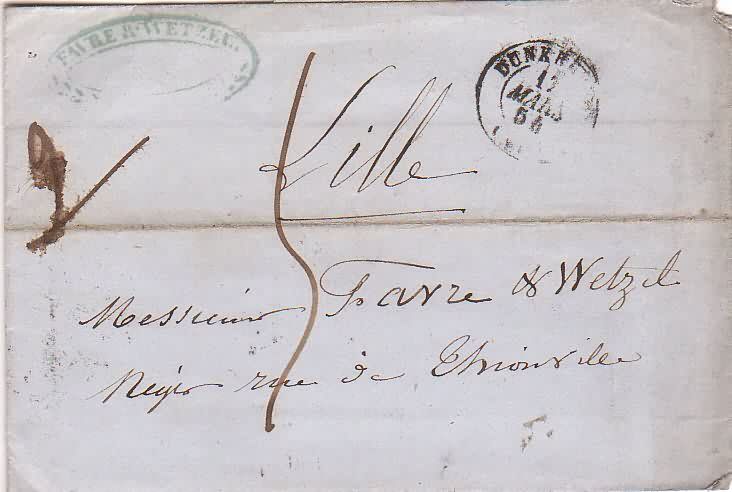 FAVRE & WETZEL
DUNKE
17
MARS
Lille
Messieurs Favre & Wetzel
Négts rue de Thionville